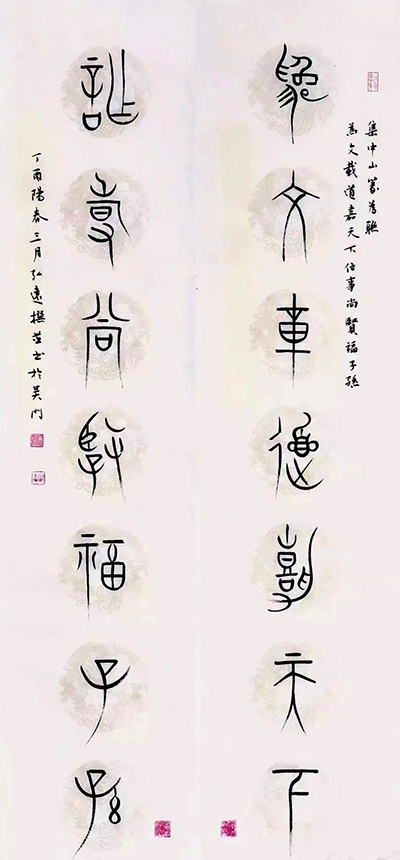 集中山篆為聯
為文載道嘉天下作事尚賢福子孫
為文載道嘉天下
作事尚賢福子孫
丁酉陽春三月弘遠撰並書於吳門